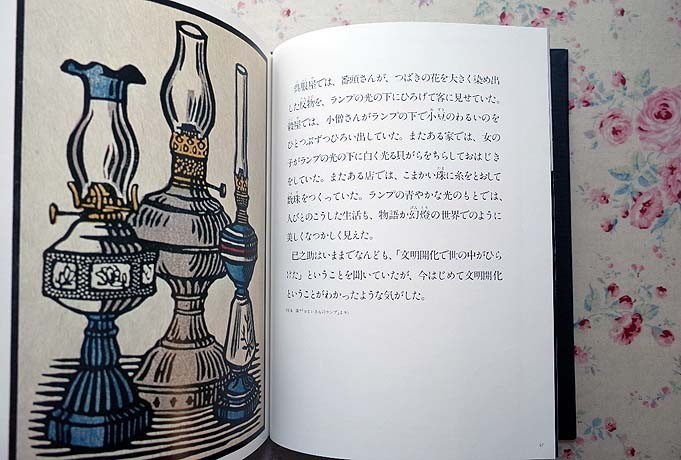 呉服屋では、番頭さんが、つばきの花を大きく染め出
した反物を、ランプの光の下にひろげて客に見せていた。
穀屋では、小僧さんがランプの下で小豆のわるいのを
ひとつぶずつひろい出していた。またある家では、女の
子がランプの光の下に白く光る貝がらをちらしておはじき
をしていた。またある店では、こまかい珠に糸をとおして
数珠をつくっていた。ランプの青やかな光のもとでは、
人びとのこうした生活も、物語か幻燈の世界でのように
美しくなつかしく見えた。
巳之助はいままでなんども、「文明開化で世の中がひら
けた」ということを聞いていたが、今はじめて文明開化
ということがわかったような気がした。